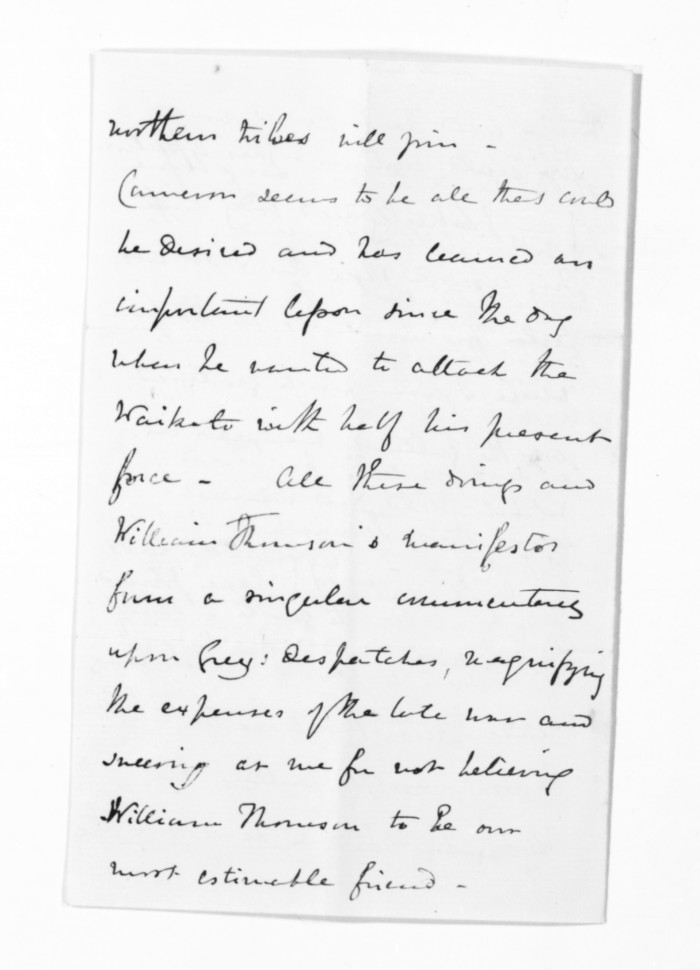 northern tribes will join -
Cameron seems to be all that could
be desired and has learned an
important lesson since the day
when he wanted to attack the
Waikato with half his present
force - All these doings and
William Thomson's manifestos
form a singular commentary
upon Grey's Despatches, magnifying
the expenses of the late war and
sneering at me for not believing
William Thomson to be our
most estimable friend -